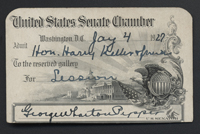 United States Senate Chamber
Washington D.C. Jay 4 1929
Admit Hon. Harry
To the reserved gallery
For Session
George Wharton Pepper
U.S. SENATOR